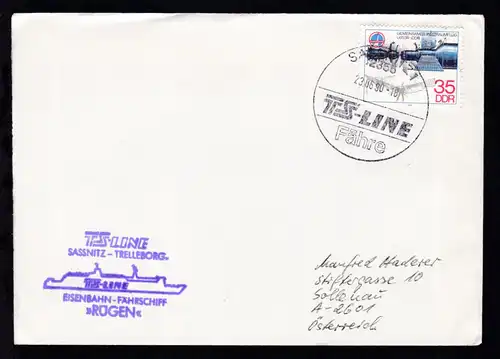 GEMEINSAMER WELTRAUMFLUG
UdSSR-DDR
35
DDR
SASSNITZ 1
2355
23.06.90-10
TS-LINE
Fähre
TS-LINE
SASSNITZ - TRELLEBORG
TS-LINE
EISENBAHN-FÄHRSCHIFF
»RÜGEN«
Manfred Haderer
Stiftergasse 10
Sollenau
A-2601
Österreich